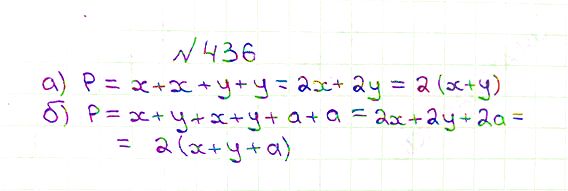 №436
а) P = x + x + y + y = 2x + 2y = 2 (x+y)
б) P = x + y + x + y + a + a = 2x + 2y + 2a =
= 2 (x + y + a)